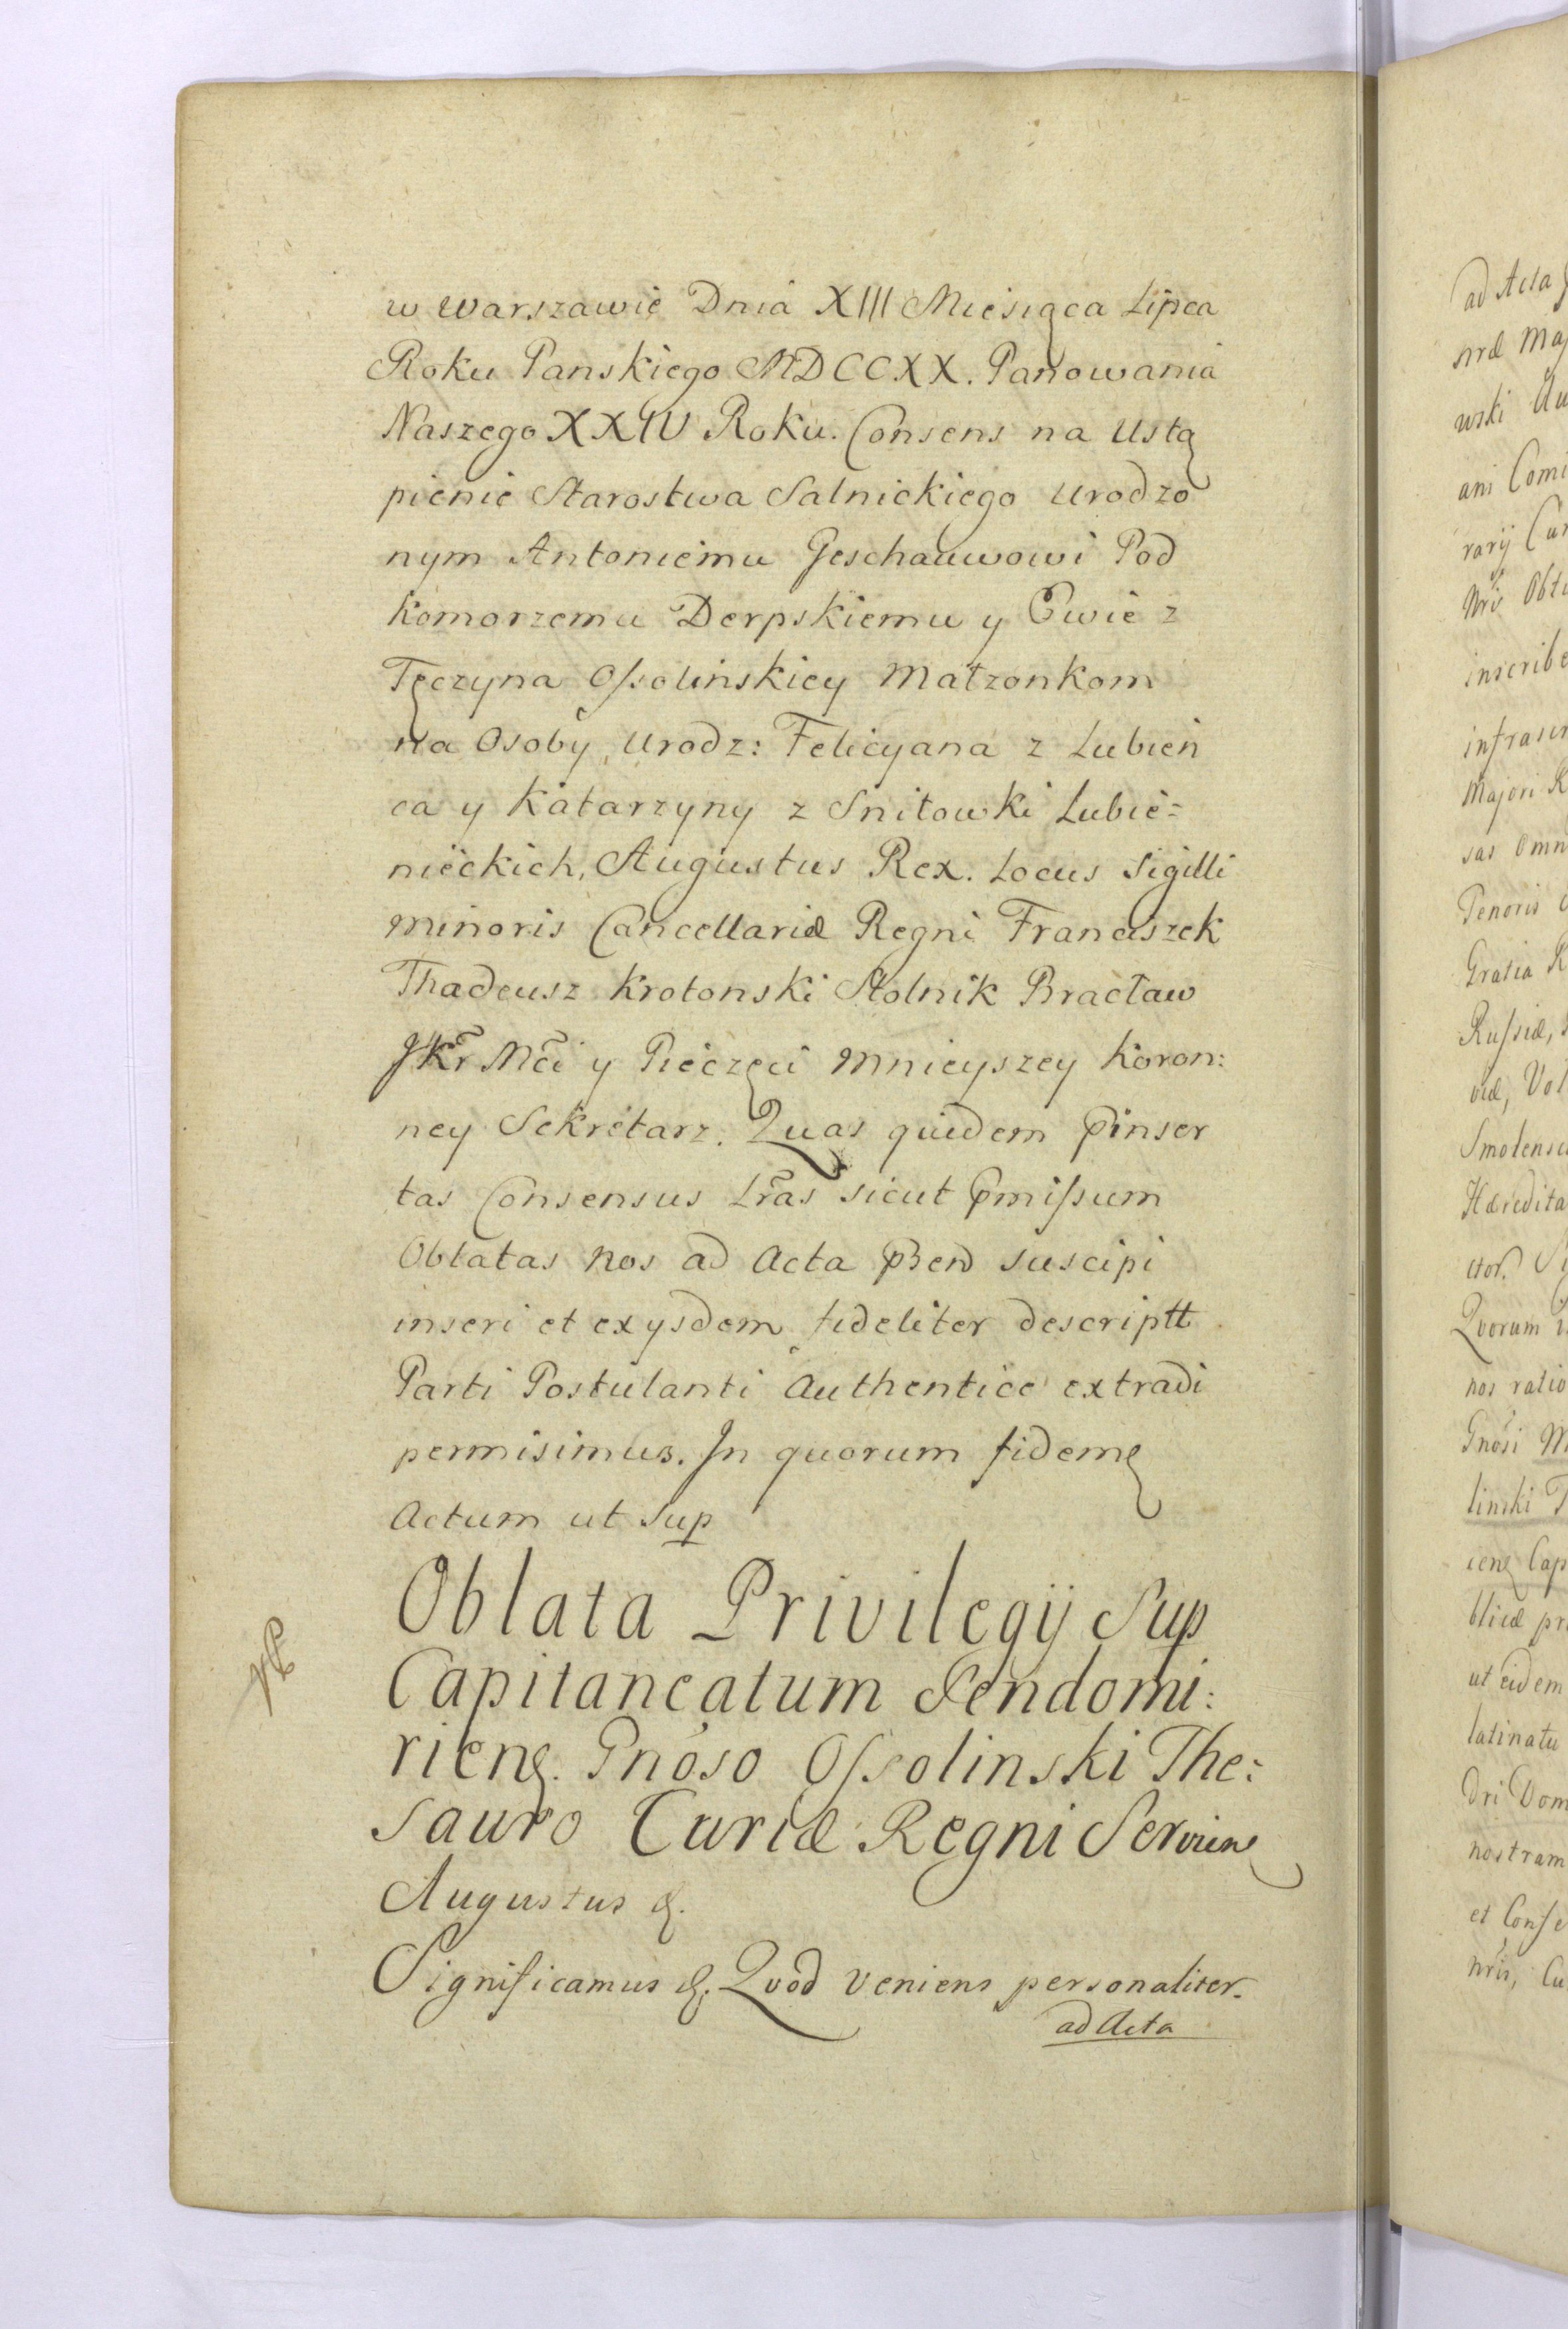 w Warszawie Dnia XIII Miesiąca Lipca
Roku Panskiego MDCCXX. Panowania
Naszego XXIV Roku. Consens na Ustą
pienie Starostwa Salnickiego Urodzo
nym Antoniemu Geschauwowi Pod
komorzemu Derpskiemu y Ewie z
Tęczyna Ossolinskiey Małzonkom
na Osoby Urodz: Felicyana z Lubień
ca y Katarzyny z Snitowki Lubie=
nieckich, Augustus Rex. Locus Sigilli
minoris Cancellariæ Regni Franciszek
Thadeusz Krotonski Stolnik Bracław
JKr Mci y Pieczęci mnieyszey Koron:
ney Sekretarz. Quas quidem pinser
tas Consensus Lras sicut pmissum
Oblatas nos ad Acta suscipi
inseri et exysdem fideliter descriptt
Parti Postulanti Authentice extradi
permisimus. In quorum fidem
Actum ut Sup
Oblata Privilegij Sup
Capitaneatum Sendomi:
rien. Gnoso Ossolinski The:
sauro Curiæ Regni Servien
Augustus &.
Significamus &. Quod veniens personaliter.
ad Acta
ad Acta
nræ Maj
wski
ani Comi
rarij Cur
Nris
inscribe
infrascr
Majori R
sas Omn
Tenoris
Gratia R
Russiæ,
viæ, Vol
Smolensc
Hæredita
Quorum
nos ratio
Gnosi
linski T
cien Cap
blicæ pr
ut eidem
latinatu
Dri Dom
nostram
et Conse
nris, Cu